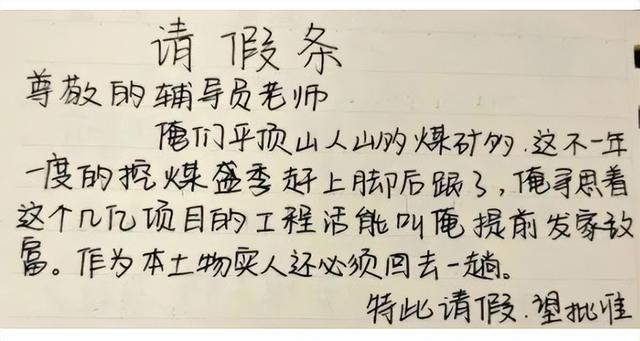 请假条
尊敬的辅导员老师
俺们平顶山人山多煤矿多.这不一年
一度的挖煤盛季赶上脚后跟了,俺寻思着
这个几亿项目的工程活能叫俺提前发家致
富。作为本土物实人还必须回去一趟。
特此请假.望批准